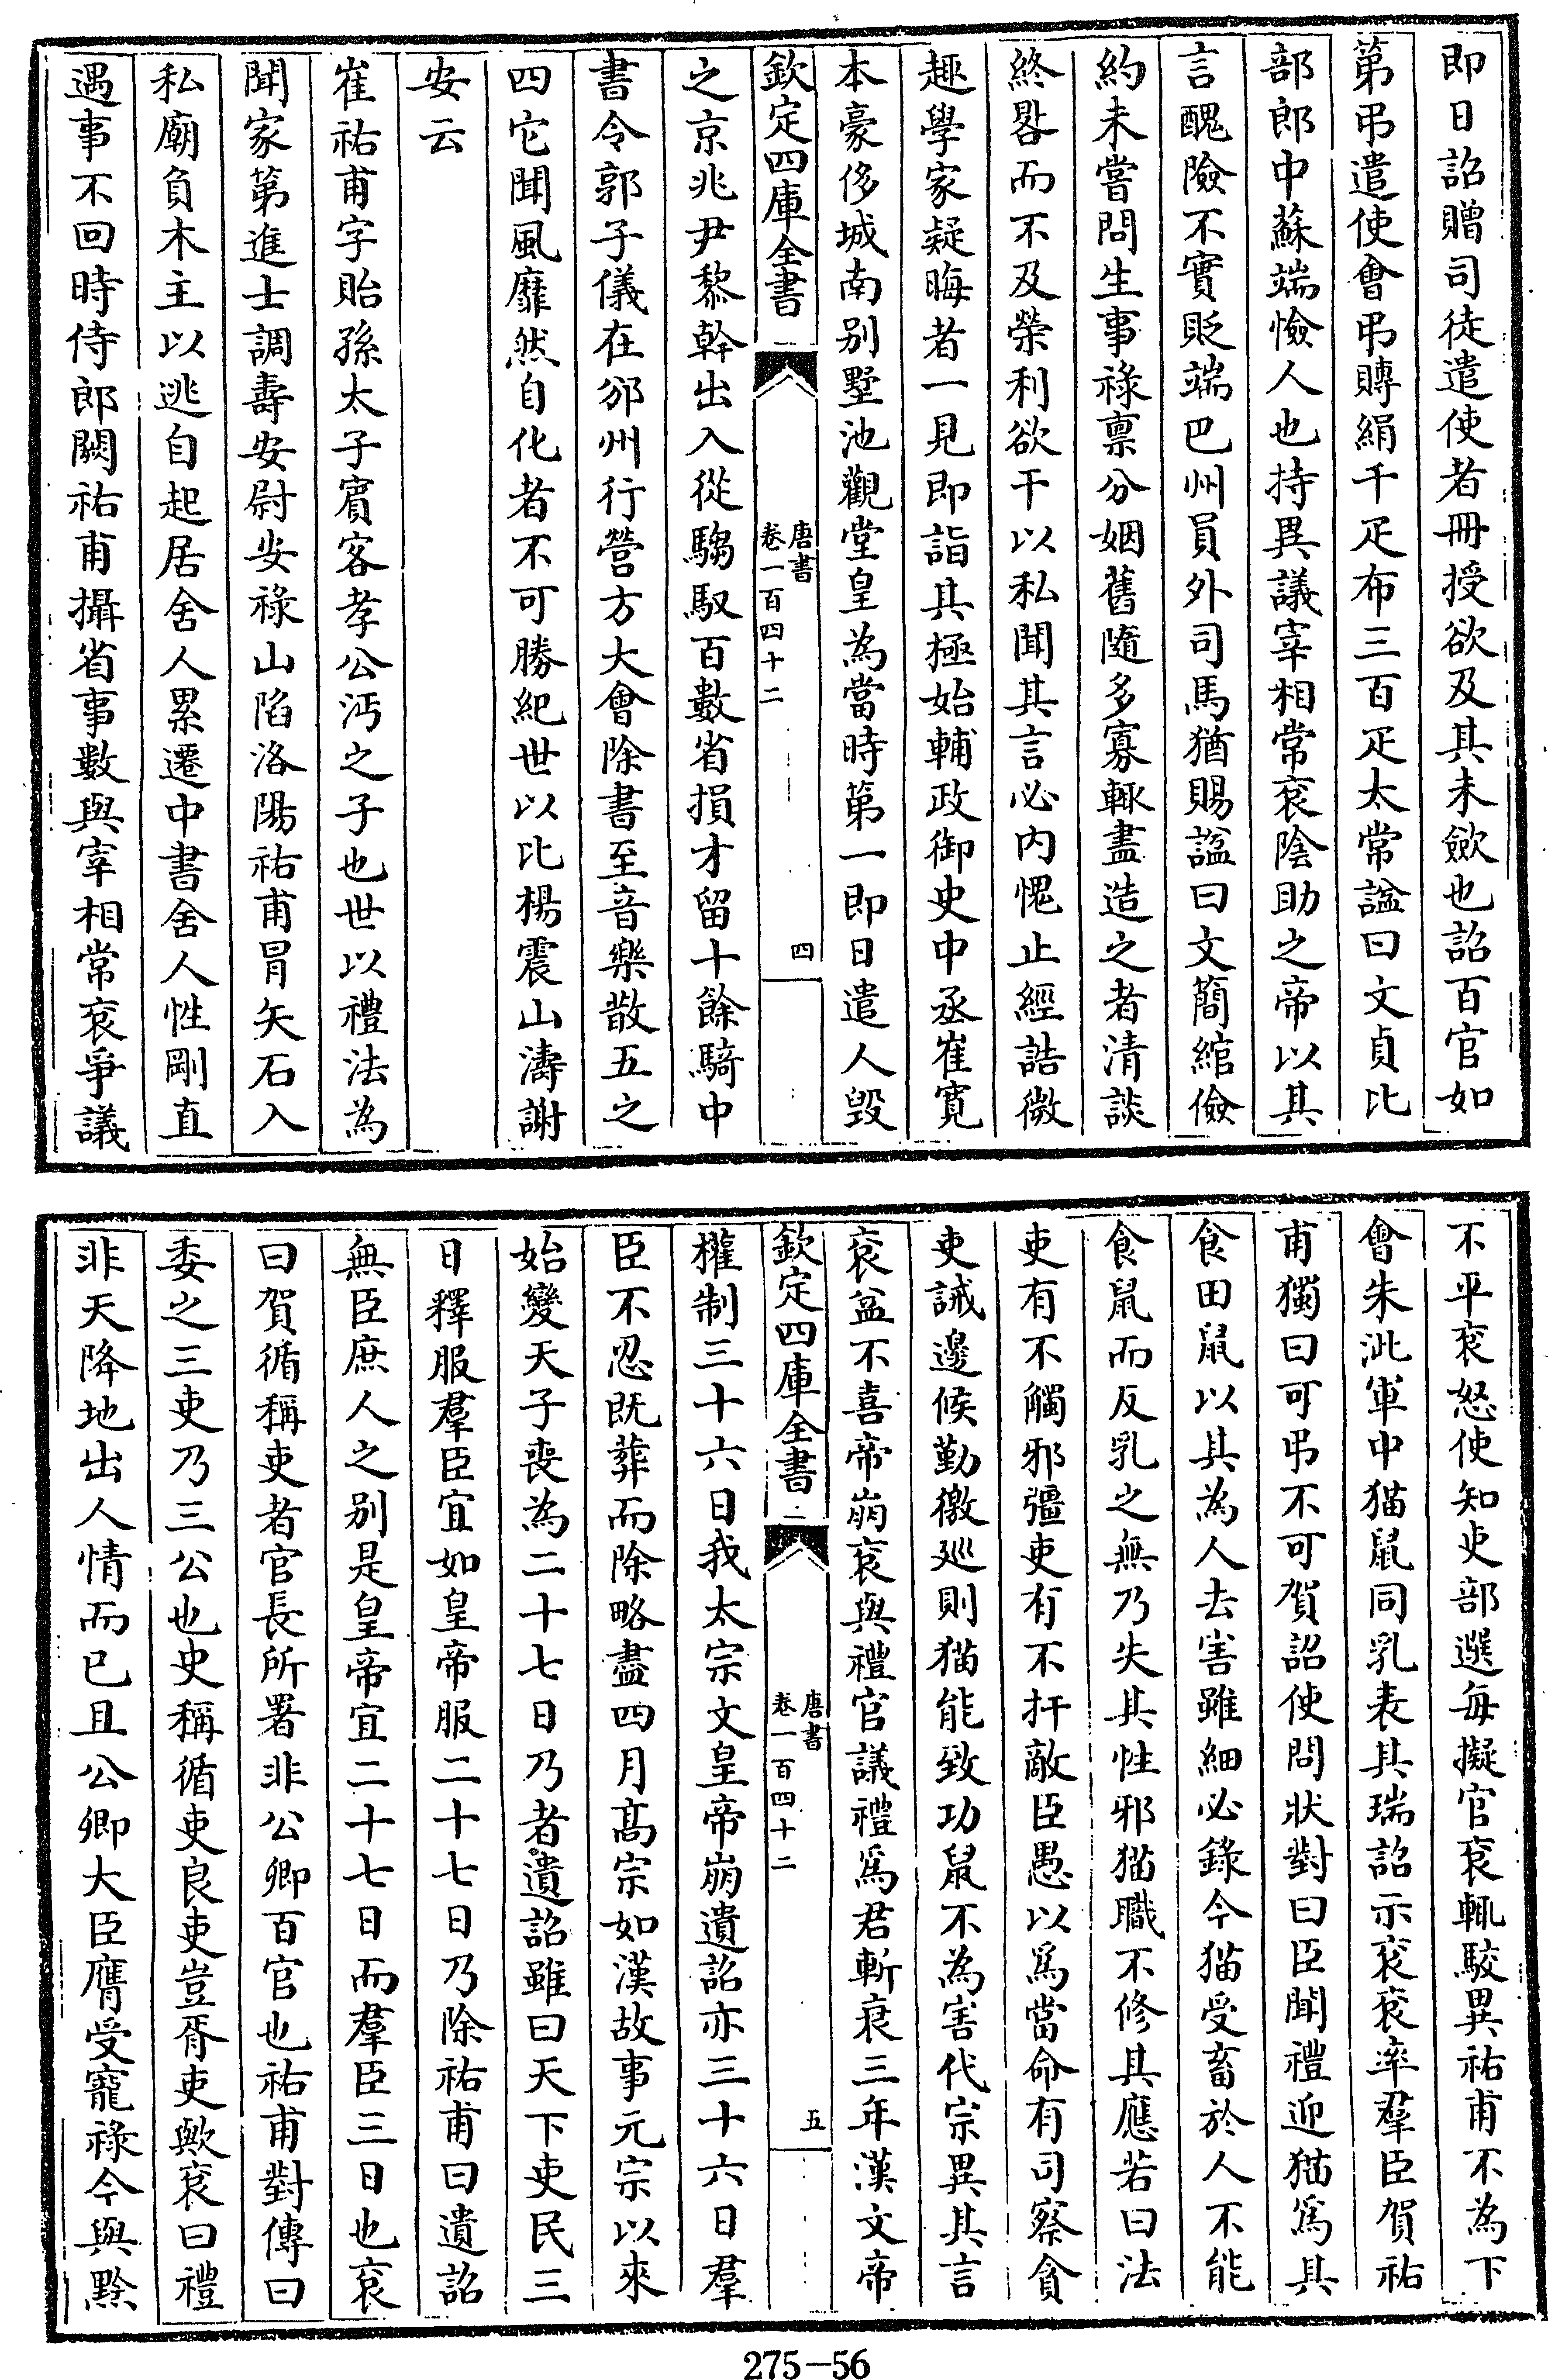 即日詔贈司徒遣使者冊授欲及其未歛也詔百官如
第弔遣使會弔賻絹千疋布三百疋太常諡曰文貞比
部郎中蘇端憸人也持異議宰相常衮陰助之帝以其
言醜險不實貶端巴州員外司馬猶賜諡曰文簡綰儉
約未嘗問生事祿禀分姻舊隨多寡輒盡造之者清談
終晷而不及榮利欲干以私聞其言必内愧止經誥微
趣學家疑晦者一見即詣其極始輔政御史中丞崔寛
本豪侈城南别墅池觀堂皇為當時第一即日遣人毀
欽定四庫全書
唐書
卷一百四十二
四
之京兆尹黎幹出入從騶馭百數省損才留十餘騎中
書令郭子儀在邠州行營方大會除書至音樂散五之
四它聞風靡然自化者不可勝紀世以比楊震山濤謝
安云
崔祐甫字貽孫太子賓客孝公沔之子也世以禮法為
聞家第進士調壽安尉安祿山陷洛陽祐甫冐矢石入
私廟負木主以逃自起居舍人累遷中書舍人性剛直
遇事不回時侍郎闕祐甫攝省事數與宰相常衮爭議
不平衮怒使知吏部選每擬官衮輒駮異祐甫不為下
會朱泚軍中猫鼠同乳表其瑞詔示衮衮率羣臣賀祐
甫獨曰可弔不可賀詔使問狀對曰臣聞禮迎猫爲其
食田鼠以其為人去害雖細必錄今猫受畜於人不能
食鼠而反乳之無乃失其性邪猫職不修其應若曰法
吏有不觸邪彊吏有不扞敵臣愚以爲當命有司察貪
吏誡邊候勤徼巡則猫能致功鼠不為害代宗異其言
衮益不喜帝崩衮與禮官議禮爲君斬衰三年漢文帝
欽定四庫全書
唐書
卷一百四十二
五
權制三十六日我太宗文皇帝崩遺詔亦三十六日羣
臣不忍既葬而除略盡四月髙宗如漢故事元宗以來
始變天子喪為二十七日乃者遺詔雖曰天下吏民三
日釋服羣臣宜如皇帝服二十七日乃除祐甫曰遺詔
無臣庶人之别是皇帝宜二十七日而羣臣三日也衮
曰賀循稱吏者官長所署非公卿百官也祐甫對傳曰
委之三吏乃三公也史稱循吏良吏豈胥吏歟衮曰禮
非天降地出人情而已且公卿大臣膺受寵祿今與黔
275-56